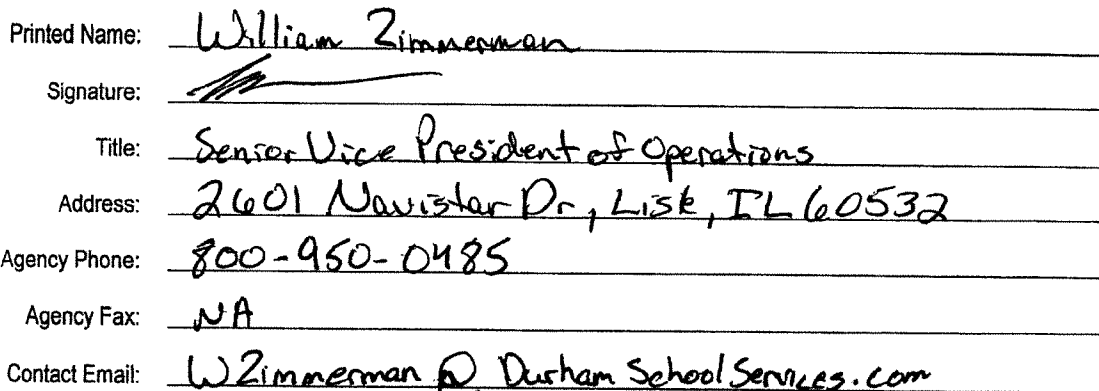 Printed Name: William Zimmerman
Signature:
Title: Senior Vice President of Operations
Address: 2601 Navistar Dr, Lisle, IL 60532
Agency Phone: 800-950-0485
Agency Fax: NA
Contact Email: WZimmerman @ Durham School Services.com